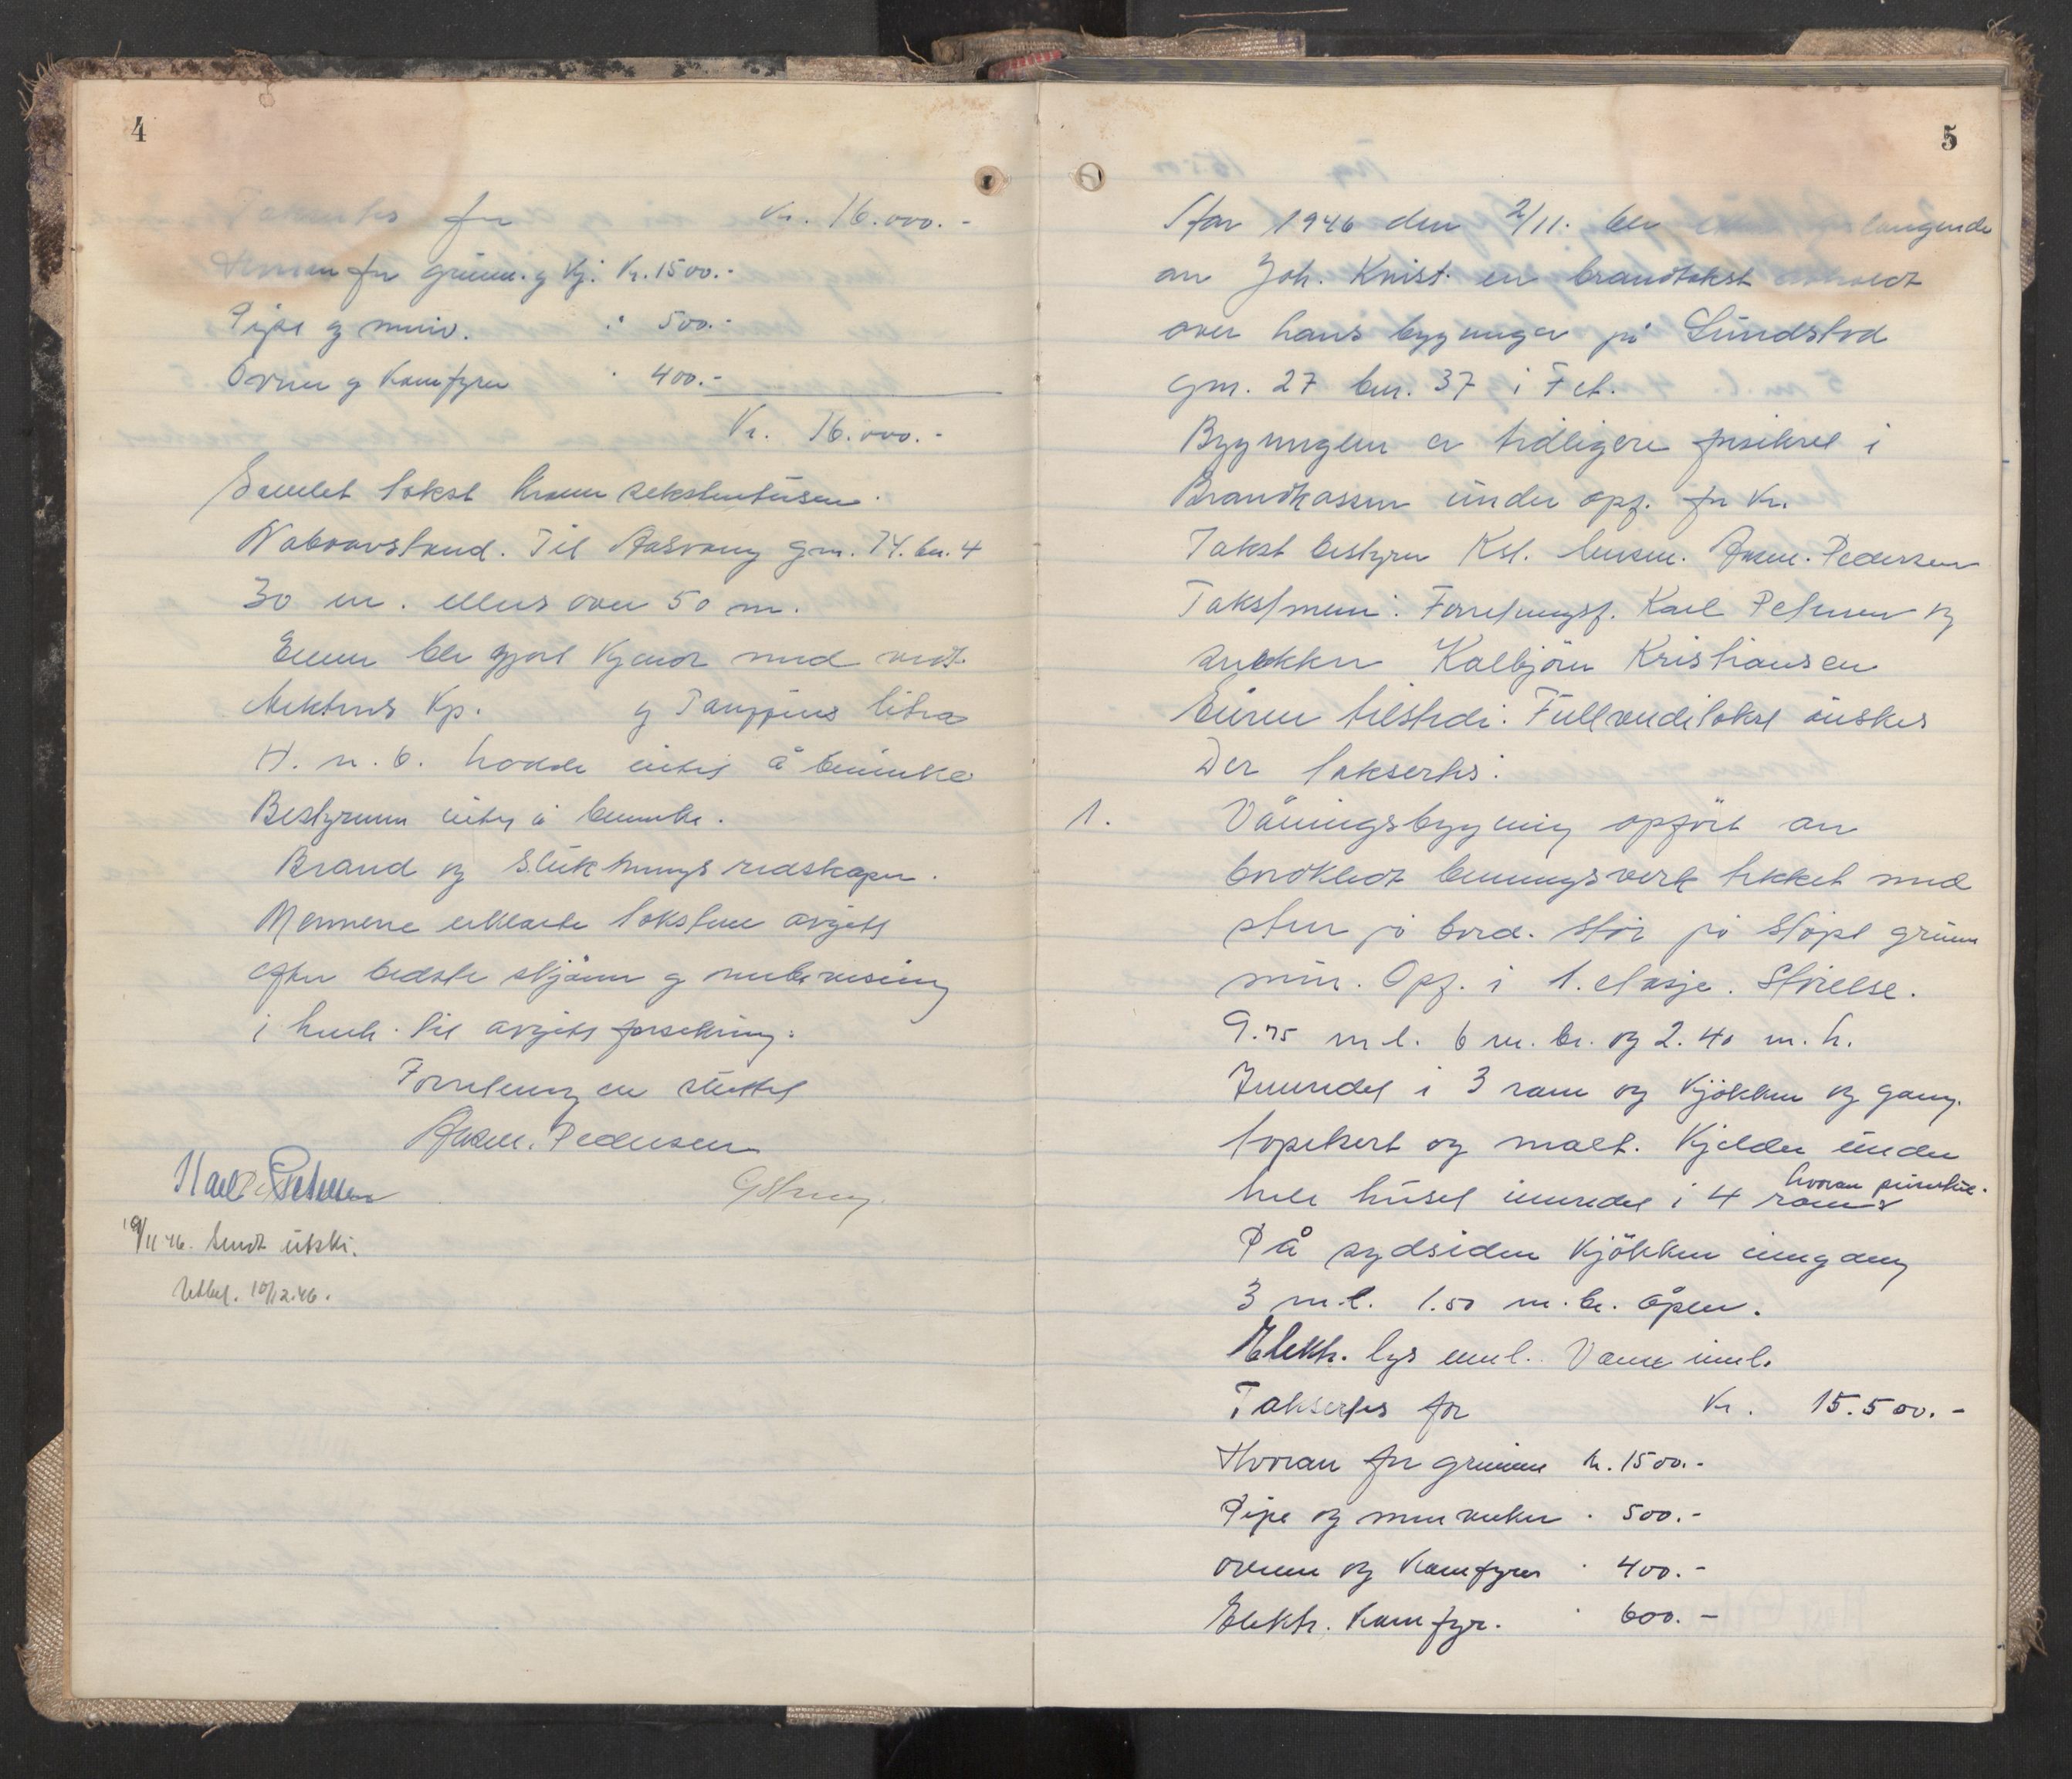 4
Takseres for Kr. 16.000.-
Hvorav for grunn. og kj. Kr. 1500.-
Pipe og muro. " 500.-
Ovner og Kamfyrer " 400.-
Kr. 16.000.-
Samlet takst Kroner sekstentusen.
Naboavstand. Til Aasvang gm. 74. bn. 4
30 m. ellers over 50 m.
Eieren ble gjort kjendt med vedt.
Kp. og litra
H. n. 6. hadde intet å bemerke
Bestyreren intet å bemerke.
Brand og Slukningsredskaper.
Mennene erklærte taksten avgitt
efter bedste skjönn og overbevisning
i henh. til avgitt forsikring.
Forretningen sluttet
Pedersen
Karl Petersen
19/11 46. Sendt utskr.
10/12.46.
5
1946 den 2/11. ble forlangende
av Joh. Knist. en brandtakst avholdt
over hans bygninger på Sundstod
gm. 27 bn. 37 i Fet.
Bygningen er tidligere forsikret i
Brandkassen under opf. for Kr.
Takst bestyrer Kst. lensm. Pedersen
Takstmenn: Forretningsf. Karl Petersen og
snekker Kolbjörn Kristiansen
Eieren tilstede. Fullverditakst önskes
Der takseres:
1. Våningsbygning opfört av
bordkledt bindingsverk tekket med
sten på bord. Står på stöpt grunn
mur. Opf. i 1. etasje. Störelse.
9.75 m l. 6 m. br. og 2.40 m. h.
Innredet i 3 rom og kjökken og gang.
tapetsert og malt. Kjelder under
hele huset innredet i 4 rom
hvorav
På sydsiden kjökken inngang
3 m.l. 1.50 m. br. åpen.
Elektr. lys innl. Vann innl.
Takseres for Kr. 15.500.-
Hvorav for grunnen kr. 1500.-
Pipe og murverker " 500.-
ovner og Kamfyrer " 400.-
Elektr. Kamfyr. " 600.-